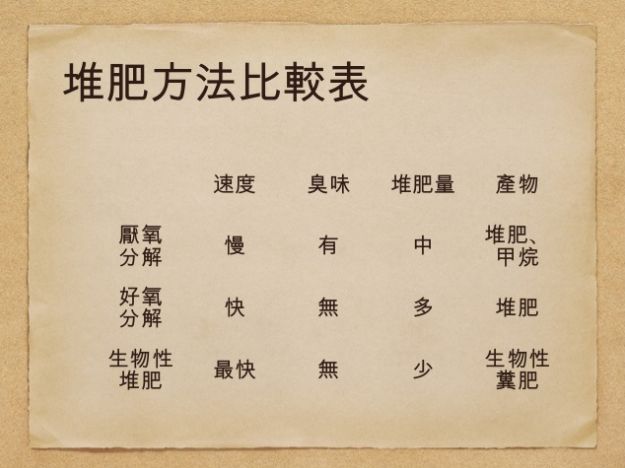 堆肥方法比較表
速度 臭味 堆肥量 產物
厭氧
分解 慢 有 中 堆肥、
甲烷
好氧
分解 快 無 多 堆肥
生物性
堆肥 最快 無 少 生物性
糞肥